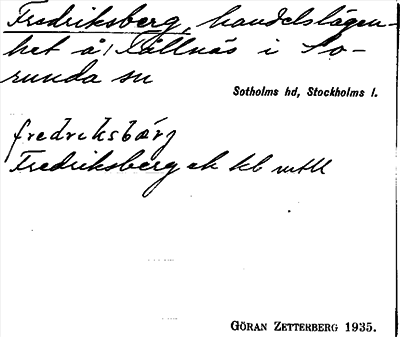 Fredriksberg, handelslägen-
het å Källnäs i So-
runda sn
Sotholms hd, Stockholms l.
fredriksbärj
Fredriksberg ek kb mtll
GÖRAN ZETTERBERG 1935.